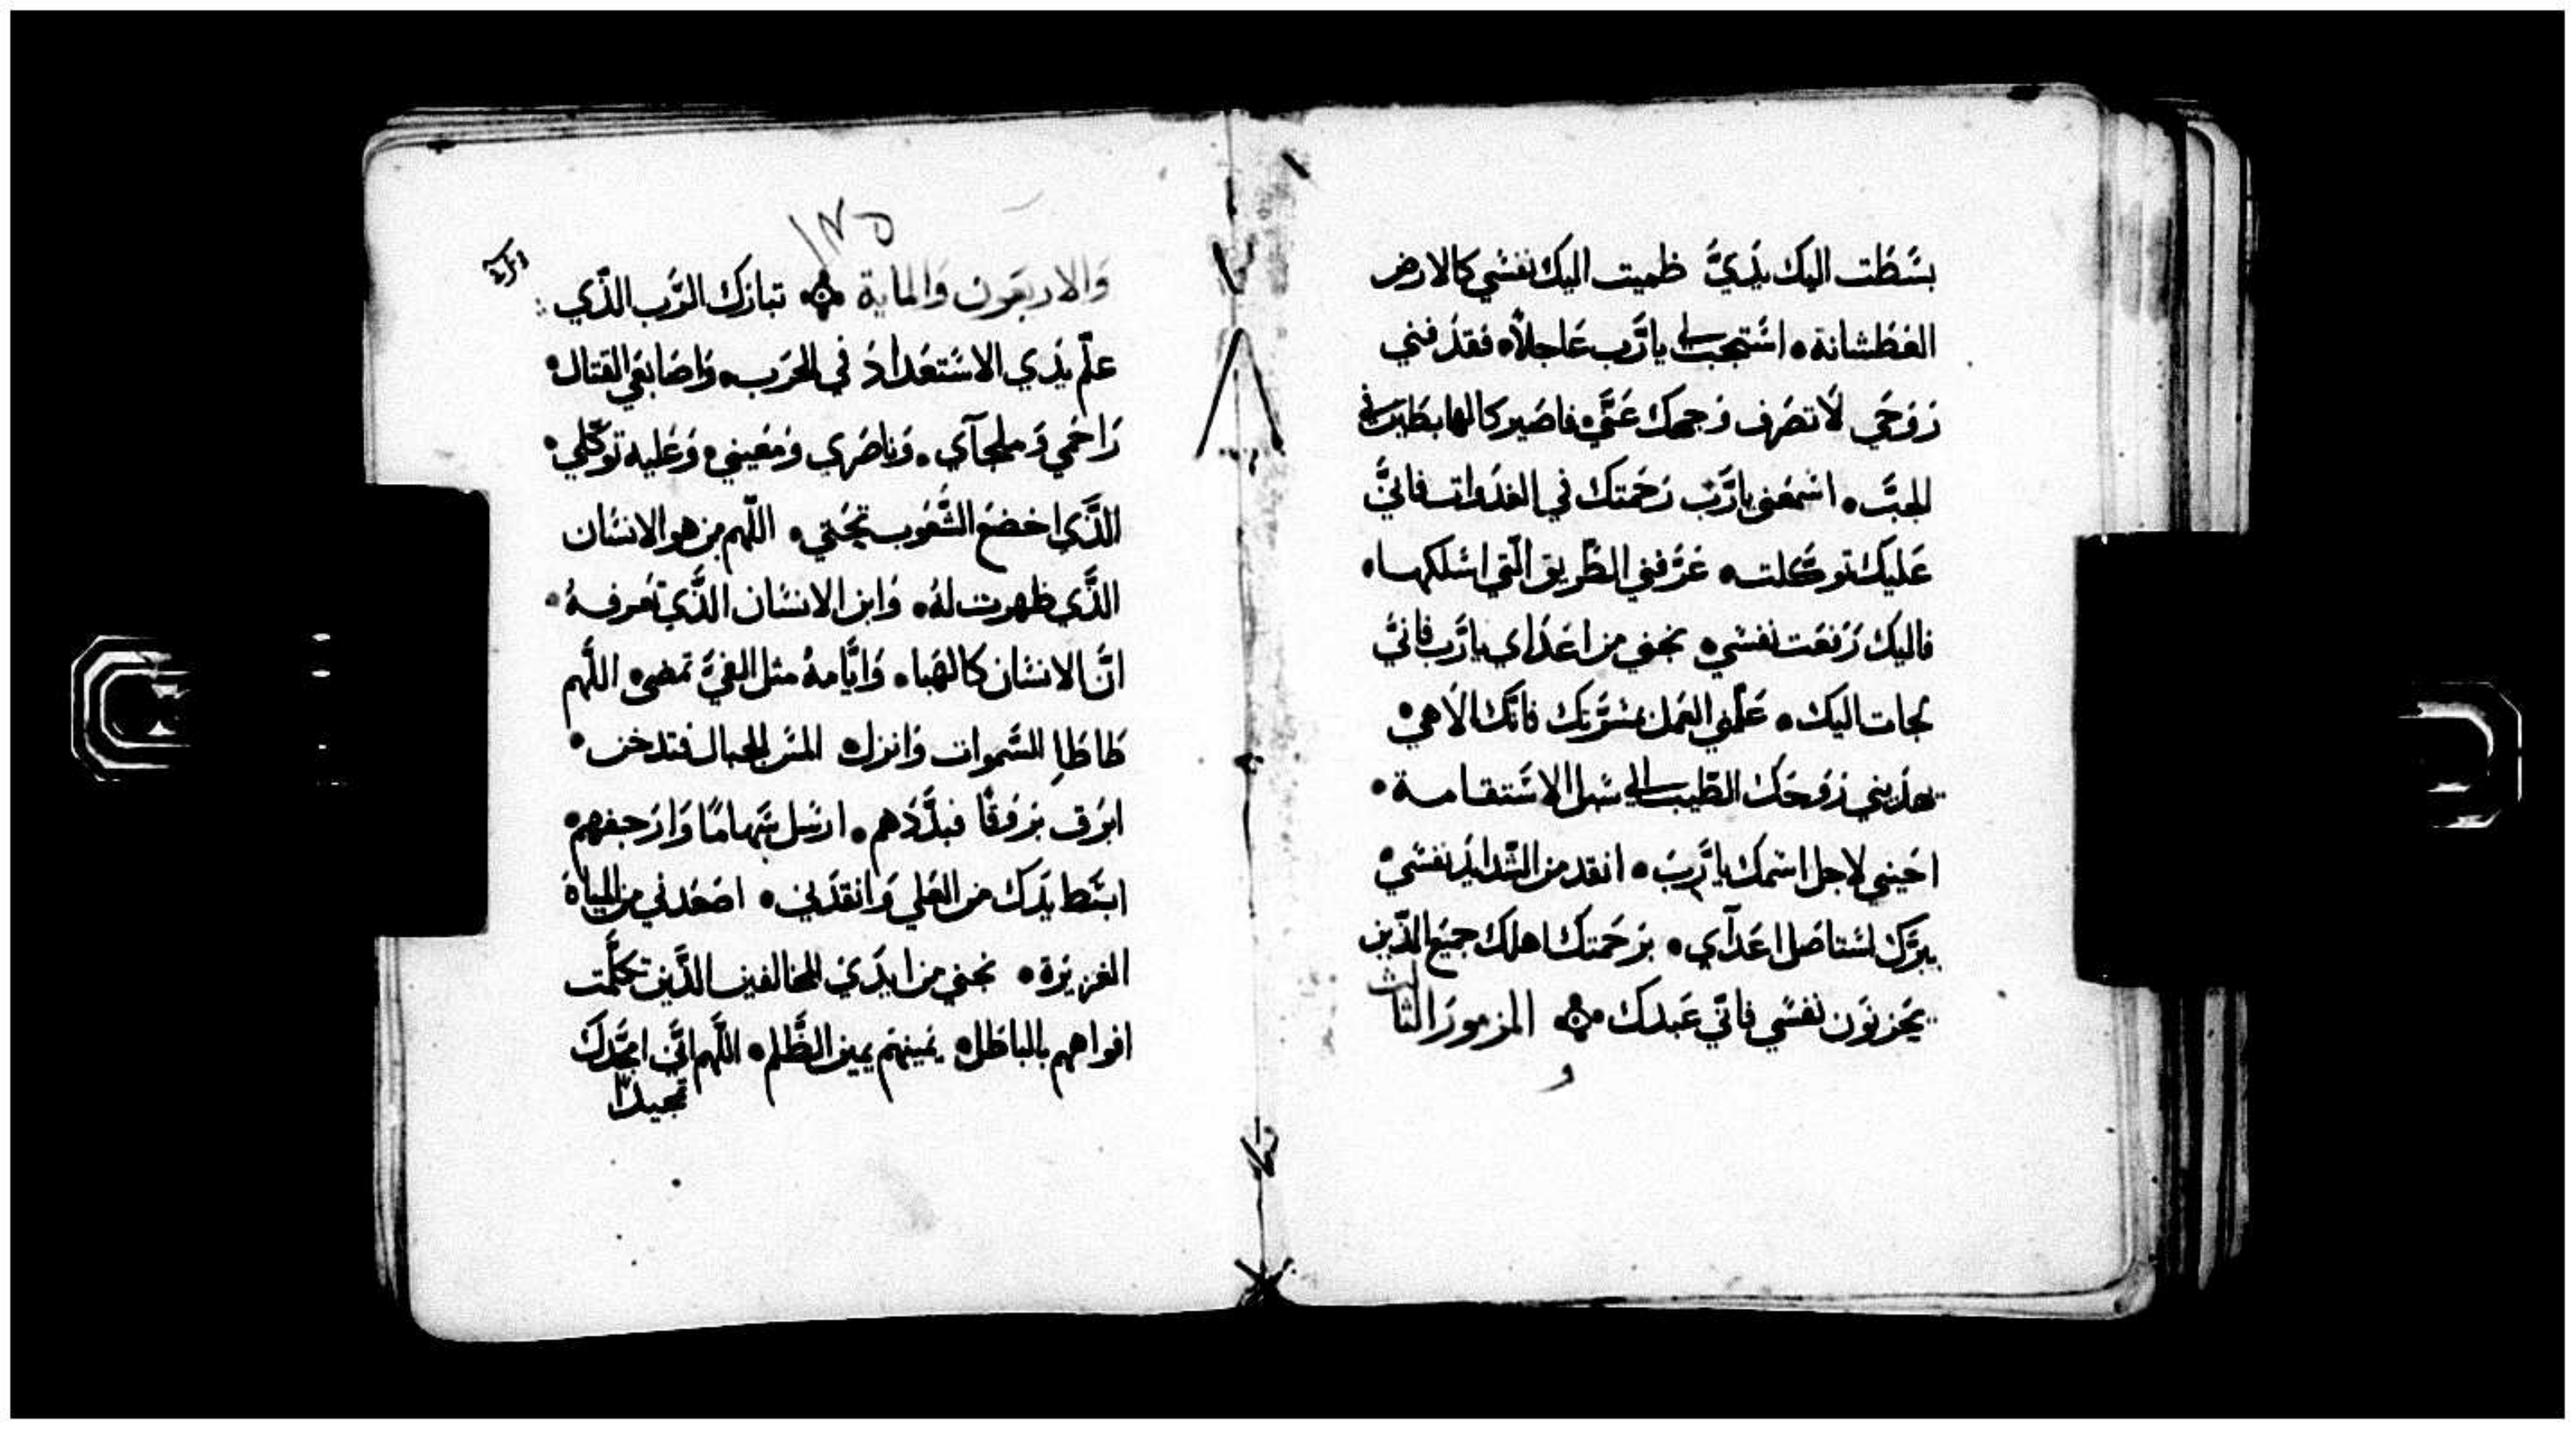 بسَطت اليك يدَيَّ ظميت اليك نفسْي كالارض
العَطشانة • اسْتجب لي يا رَّب عَاجلاً • فقدْ فني
رَوحَي لَا تصَرف وَجهك عَنّي • فاصَير كالهابطين في
الجبَّ • اسْمعَني يا رَّبْ رَحمَتك في الغدَوات فانيَّ
عَليك توكَّلت • عَرَّفني الطَّريق الّتي اسْلكهـا •
فاليك رَفعَت نفسْي • نجني من اعَدَاي يا رَّب فانيَّ
لجات اليك • عَلّمني العَمل بمسَّرَتك فانّك الَاهي •
يهدَيني رَوحَك الطّيب الي سْبل الاسْتقـامـة •
احَيني لاجل اسْمك يا رَّبَ • انقد من الشّدايدْ نفسْي •
ببرَّك لتسْتاصَل اعَدَآي • برَحمَتك اهلك جميَع الذّين
يحَزنوَن نفسْي فانّي عَبدك • المزمورَ الثالث
و
١٣٥
وَالاربعَون وَالماية • تباركْ الرَّب الذّي
علّم يَدْي الاسْتعَدادْ في الحَرَب • وَاصَابعَي القتال •
رَاحمَي وَملجآي • وَناصَري وَمعَيني • وَعَليه توكّلي •
الذَّي اخضَع الشّعَوب تحَتي • اللّهم من هو الانسْان
الذَّي ظهرت لهُ • وَابن الانسْان الذَّي تعَرفـهُ •
انَّ الانسْان كالهَبا • وَايَّامهُ مثل الفيَّ تمضي • اللّهم
طَاطَا السَّموات وَانزل • المسْ الجبال فتدخن •
ابرَق برَوقًا فبدَّدَهم • ارسْل سَهامًا وَارَجفهم •
ابسْط يدَك من العَلي وَانقدَني • اصَعَدني من المياهَ
الغزيرَة • نجني من ايدَيْ المخالفين الذَّين تكلَّمت
افواههم بالباطَل • يمَينهم يمين الظَّلم • اللّهم انّي امجّدَك
تمجيدًا